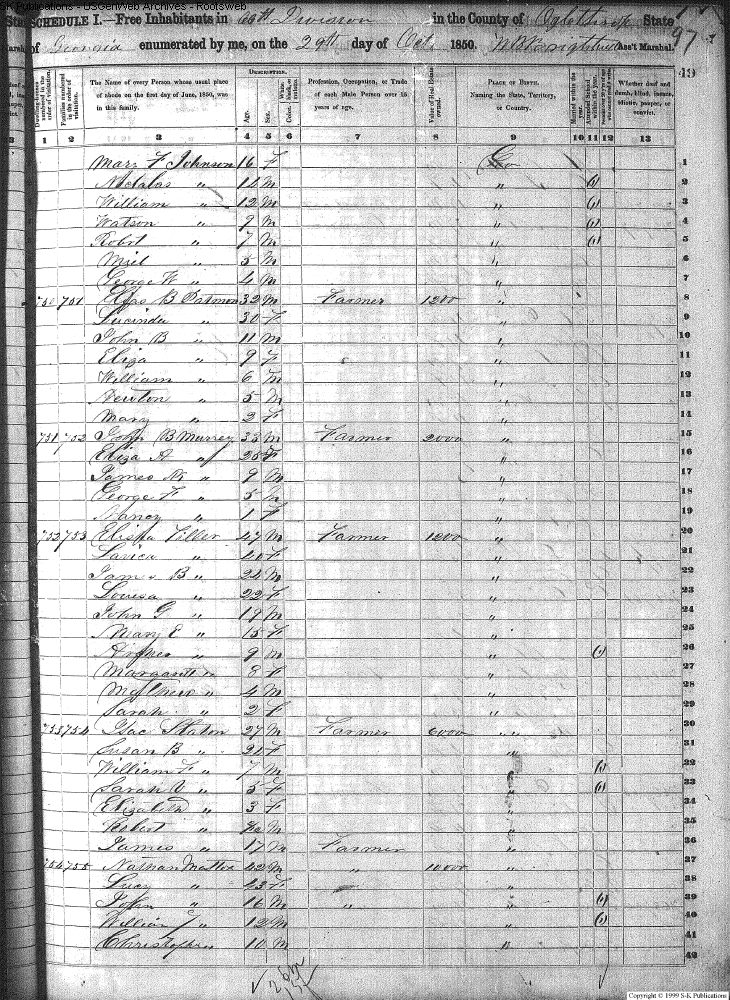 SK Publications - USGenWeb Archives - Rootsweb
SCHEDULE I.—Free Inhabitants in 66th Division in the County of Oglethorpe State
of Georgia enumerated by me, on the 29th day of Oct 1850. Ass't Marshal.
97
49
Dwelling-houses numbered in the order of visitation.
Families numbered in the order of visitation.
The Name of every Person whose usual place of abode on the first day of June, 1850, was in this family.
DESCRIPTION.
Age.
Sex.
Color
Profession, Occupation, or Trade of each Male Person over 15 years of age.
Value of Real Estate owned.
PLACE OF BIRTH. Naming the State, Territory, or Country.
Married within the year.
Attended School within the year.
Whether deaf and dumb, blind, insane, idiotic, pauper, or convict.
1 2 3 4 5 6 7 8 9 10 11 12 13
Mary F Johnson 16 F Geo 1
" 14 M " (1) 2
William " 12 M " (1) 3
Watson " 9 M " (1) 4
Robert " 7 M " (1) 5
" 5 M " 6
George W " 4 M " 7
751 B Patmon 32 M Farmer 1200 " 8
Lucinda " 30 F " 9
John B " 11 M " 10
Eliza " 9 F " 11
William " 6 M " 12
Newton " 5 M " 13
Mary " 2 F " 14
751 752 John B Murrey 33 M Farmer 2000 " 15
Eliza A " 25 F " 16
James " 9 M " 17
George F " 5 M " 18
Nancy " 1 F " 19
752 753 Elisha Tiller 47 M Farmer 1200 " 20
" 40 F " 21
B " 24 M " 22
Louisa " 22 F " 23
John G " 19 M " 24
Mary E " 15 F " 25
" 9 M " (1) 26
Margarett " 8 F " 27
" 4 M " 28
Sarah " 2 F " 29
753 754 Isac Slaton 27 M Farmer 6000 " " 30
Susan B " 21 F " 31
William F " 7 M (1)
Sarah V " 5 F " (1) 33
Elizabeth " 3 F " 34
Robert " M " 35
James " 17 M Farmer " 36
754 755 Nathan Mattox 42 M " 10000 "
Lucy " 43 F "
John " 16 M " " (1)
William J " 12 M " (1) 40
Christopher 10 M " 41
42
Copyright © 1999 S-K Publications